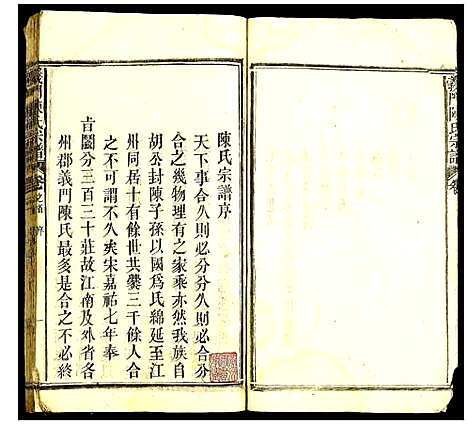 義門陳氏宗譜
陳氏宗譜序
天下事合久則必分分久則必合分
合之幾物理有之家乘亦然我族自
胡公封陳子孫以國為氏綿延至江
州同居十有餘世共爨三千餘人合
之不可謂不久矣宋嘉祐七年奉
旨鬮分三百三十莊故江南及外省各
州郡義門陳氏最多是合之不必終
義門陳氏宗譜